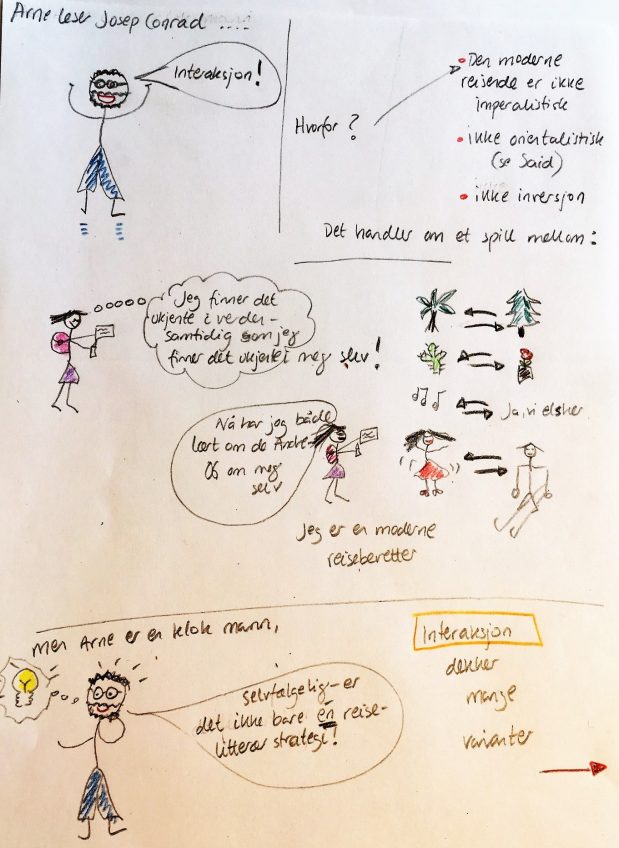 Arne leser Josep Conrad .....
Interaksjon!
Hvorfor?
• Den moderne
reisende er ikke
imperalistisk
• ikke orientalistisk
(se Said)
• ikke inversjon
Det handler om et spill mellom:
Jeg finner det
ukjente i verden -
samtidig som jeg
finer det ukjente i meg selv!
Ja, vi elsker
Nå har jeg både
lært om de Andre
OG om meg
selv
Jeg er en moderne
reiseberetter
Men Arne er en klok mann,
selvfølgelig - er
det ikke bare én reise-
litterær strategi!
Interaksjon
dekker
mange
varianter